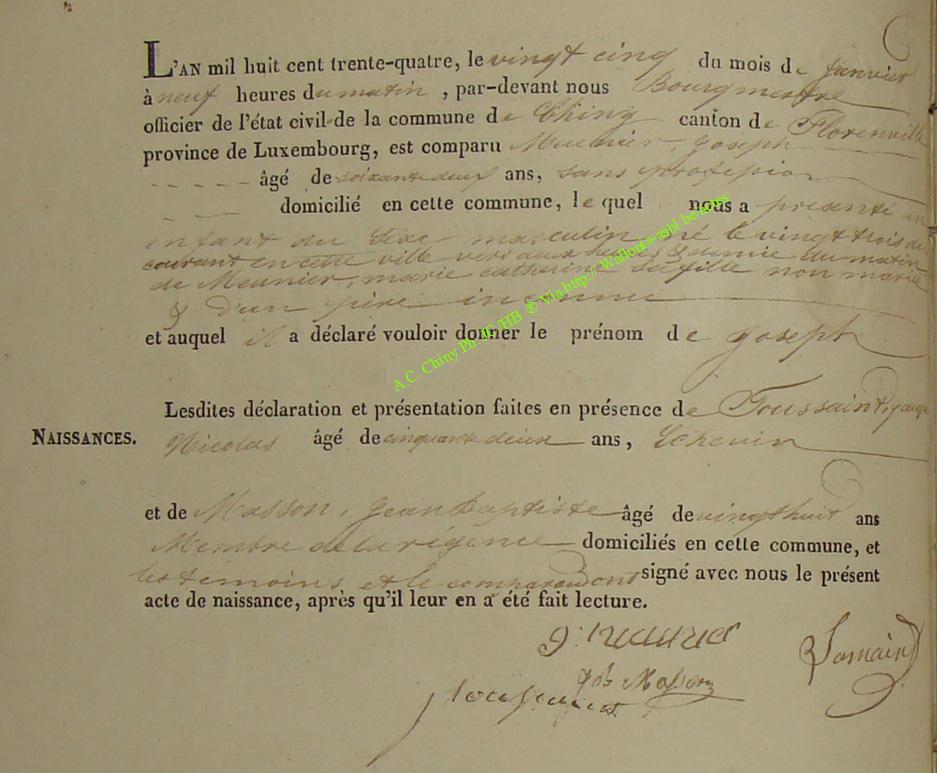 L'AN mil huit cent trente-quatre, le vingt cinq du mois de Janvier
à neuf heures du matin, par-devant nous Bourgmestre
officier de l'état civil de la commune de Chiny canton de Florenville
province de Luxembourg, est comparu Meunier, Joseph
âgé de soixante deux ans, sans profession
domicilié en cette commune, lequel nous a présenté un
enfant du Sexe masculin né le vingt trois du
courant en cette ville vers deux heures & demie du matin
de Meunier, marie catherine sa fille non mariée
& d'un père inconnu
et auquel il a déclaré vouloir donner le prénom de Joseph
Lesdites déclaration et présentation faites en présence de Toussaint, Jacques
NAISSANCES. Nicolas âgé de cinquante deux ans, Echevin
et de Masson, Jean Baptiste âgé de vingt huit ans
Membre de la régence domiciliés en cette commune, et
les témoins et le comparant ont signé avec nous le présent
acte de naissance, après qu'il leur en a été fait lecture.
J: Meunier
Jb Masson
A.C. Chiny Ph. JG/HB ® Via http://Wallonia-asbl.be